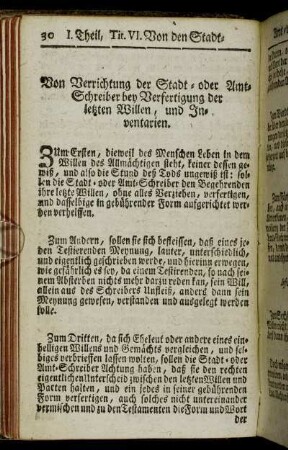 30 I. Theil, Tit. VI. Von den Stadt-
Von Verrichtung der Stadt- oder Amt-
Schreiber bey Verfertigung der
letzten Willen, und In-
ventarien.
Zum Ersten, dieweil des Menschen Leben in dem
Willen des Allmächtigen steht, keiner dessen ge-
wiß, und also die Stund deß Tods ungewiß ist: sol-
len die Stadt- oder Amt-Schreiber den Begehrenden
ihre letzte Willen, ohne alles Verziehen, verfertigen,
und dasselbige in gebührender Form aufgericht wer-
den verhelffen.
Zum Andern, sollen sie sich befleissen, daß eines je-
den Testierenden Meynung, lauter, unterschiedlich,
und eigentlich geschrieben werde, und hierinn erwegen,
wie gefährlich es sey, da einem Testirenden, so nach sei-
nem Absterben nichts mehr darzu reden kan, sein Will,
allein aus des Schreibers Unfleiß, anderst dann sein
Meynung gewesen, verstanden und ausgelegt werden
solle.
Zum Dritten, da sich Eheleut oder andere eines ein-
helligen Willens und Gemächts vergleichen, und sel-
biges verbrieffen lassen wolten, sollen die Stadt- oder
Amt-Schreiber Achtung haben, daß sie den rechten
eigentlichen Unterscheid zwischen den letzten Willen und
Pacten halten, und ein jedes in seiner gebührenden
Form verfertigen, auch solches nicht untereinander
vermischen und zu den Testamenten die Form und Wort
der